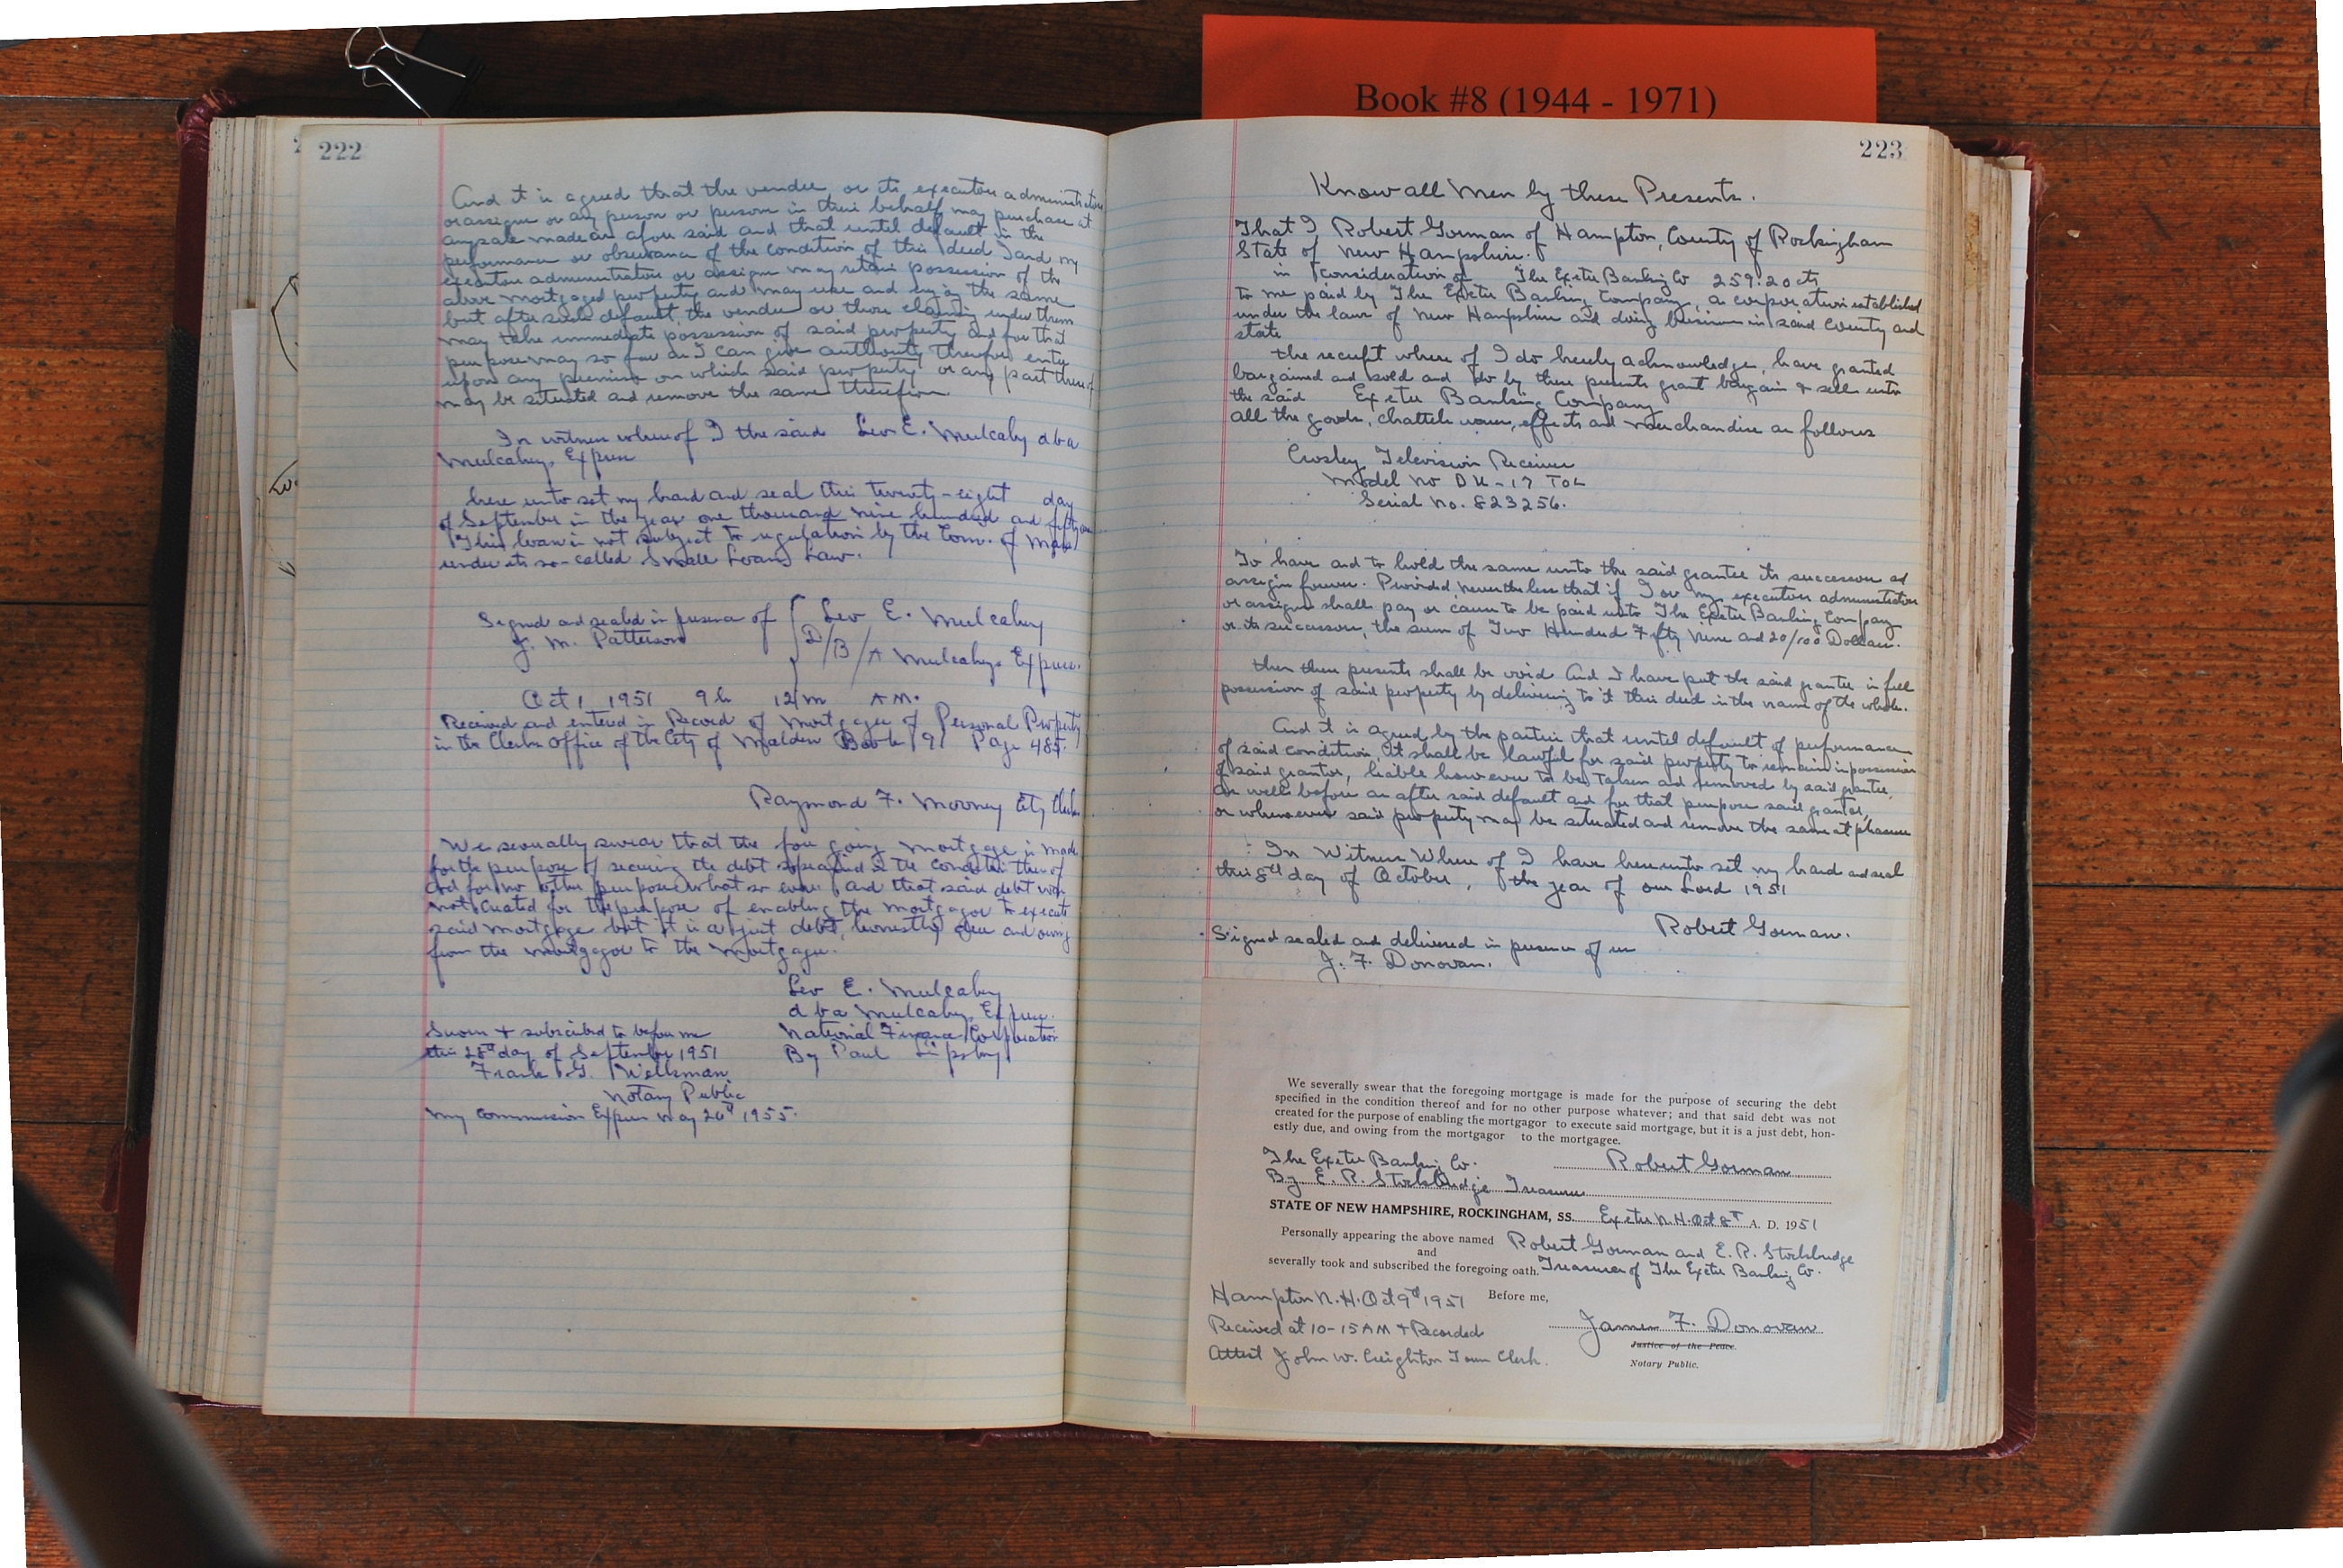 Book #8 (1944 - 1971)
222
And it is agreed that the vendee, or its executors administrators
or assigns or any person or person in their behalf may purchase at
any sale made as afore said and that until default in the
performance or observance of the condition of this deed I and my
executors administrators or assigns may retain possession of the
above mortgaged property and may use and enjoy the same
but after such default the vendee or those claiming under them
may take immediate possession of said property and for that
purpose may so far as I can give authority therefor enter
upon any premises on which said property or any part thereof
may be situated and remove the same therefrom
In witness whereof I the said Leo E. Mulcahy dba
Mulcahys Express
here unto set my hand and seal this twenty-eight day
of September in the year one thousand nine hundred and fifty one
This loan is not subject to regulation by the Com. of Mass
under its so-called Small Loans Law.
Signed and sealed in presence of
J. M. Patterson
Leo E. Mulcahy
D/B/A Mulcahys Express.
Oct 1 1951 9h 12m AM.
Received and entered in Record of Mortgages of Personal Property
in the Clerks Office of the City of Malden Book 191 Page 485.
Raymond F. Mooney City Clerk
We severally swear that the fore going mortgage is made
for the purpose of securing the debt specified in the condition thereof
and for no other purpose what so ever and that said debt was
not created for the purpose of enabling the mortgagor to execute
said mortgage but it is a just debt, honestly due and owing
from the mortgagor to the mortgagee.
Leo E. Mulcahy
dba Mulcahys Express.
National Finance Corporation
By Paul Lipsky
Sworn + subscribed to before me
this 28th day of September 1951
Frank G. Wellsman
Notary Public
My commission Expires May 26th 1955.
223
Know all Men by these Presents.
That I Robert Gorman of Hampton, County of Rockingham
State of New Hampshire.
in consideration of The Exeter Banking Co 259.20 cts
to me paid by The Exeter Banking Company, a corporation established
under the laws of New Hampshire and doing business in said County and
state
the receipt where of I do hereby acknowledge, have granted
bargained and sold and do by these presents grant bargain + sell unto
the said Exeter Banking Company
all the goods, chattels wares, effects and merchandise as follows
Crosley Television Receiver
Model No DU-17 TOL
Serial No. 823256.
To have and to hold the same unto the said grantee its successors ad
assigns forever. Provided nevertheless that if I or my executors administrators
or assigns shall pay or cause to be paid unto The Exeter Banking Company
or its successors, the sum of Two Hundred Fifty Nine and 20/100 Dollars.
then these presents shall be void. And I have put the said grantee in full
possession of said property by delivering to it this deed in the name of the whole.
And it is agreed by the parties that until default of performance
of said condition, it shall be lawful for said property to remain in possession
of said grantor, liable however to be taken ad removed by said grantee,
as well before as after said default and for that purpose said grantor,
or wheresoever said property may be situated and remove the same at pleasure
In Witness Where of I have hereunto set my hand and seal
this 8th day of October, the year of our Lord 1951
Robert Gorman.
Signed sealed and delivered in presence of us
J. F. Donovan.
We severally swear that the foregoing mortgage is made for the purpose of securing the debt
specified in the condition thereof and for no other purpose whatever; and that said debt was not
created for the purpose of enabling the mortgagor to execute said mortgage, but it is a just debt, hon-
estly due, and owing from the mortgagor to the mortgagee.
The Exeter Banking Co. Robert Gorman
By E. R. Stockbridge Treasurer
STATE OF NEW HAMPSHIRE, ROCKINGHAM, SS. Exeter N.H. Oct 8th A. D. 1951
Personally appearing the above named Robert Gorman and E. R. Stockbridge
and
severally took and subscribed the foregoing oath. Treasurer of The Exeter Banking Co.
Before me,
Hampton N.H. Oct 9th 1951
Received at 10-15 AM + Recorded
Attest John W. Creighton Town Clerk.
James F. Donovan
Justice of the Peace.
Notary Public.